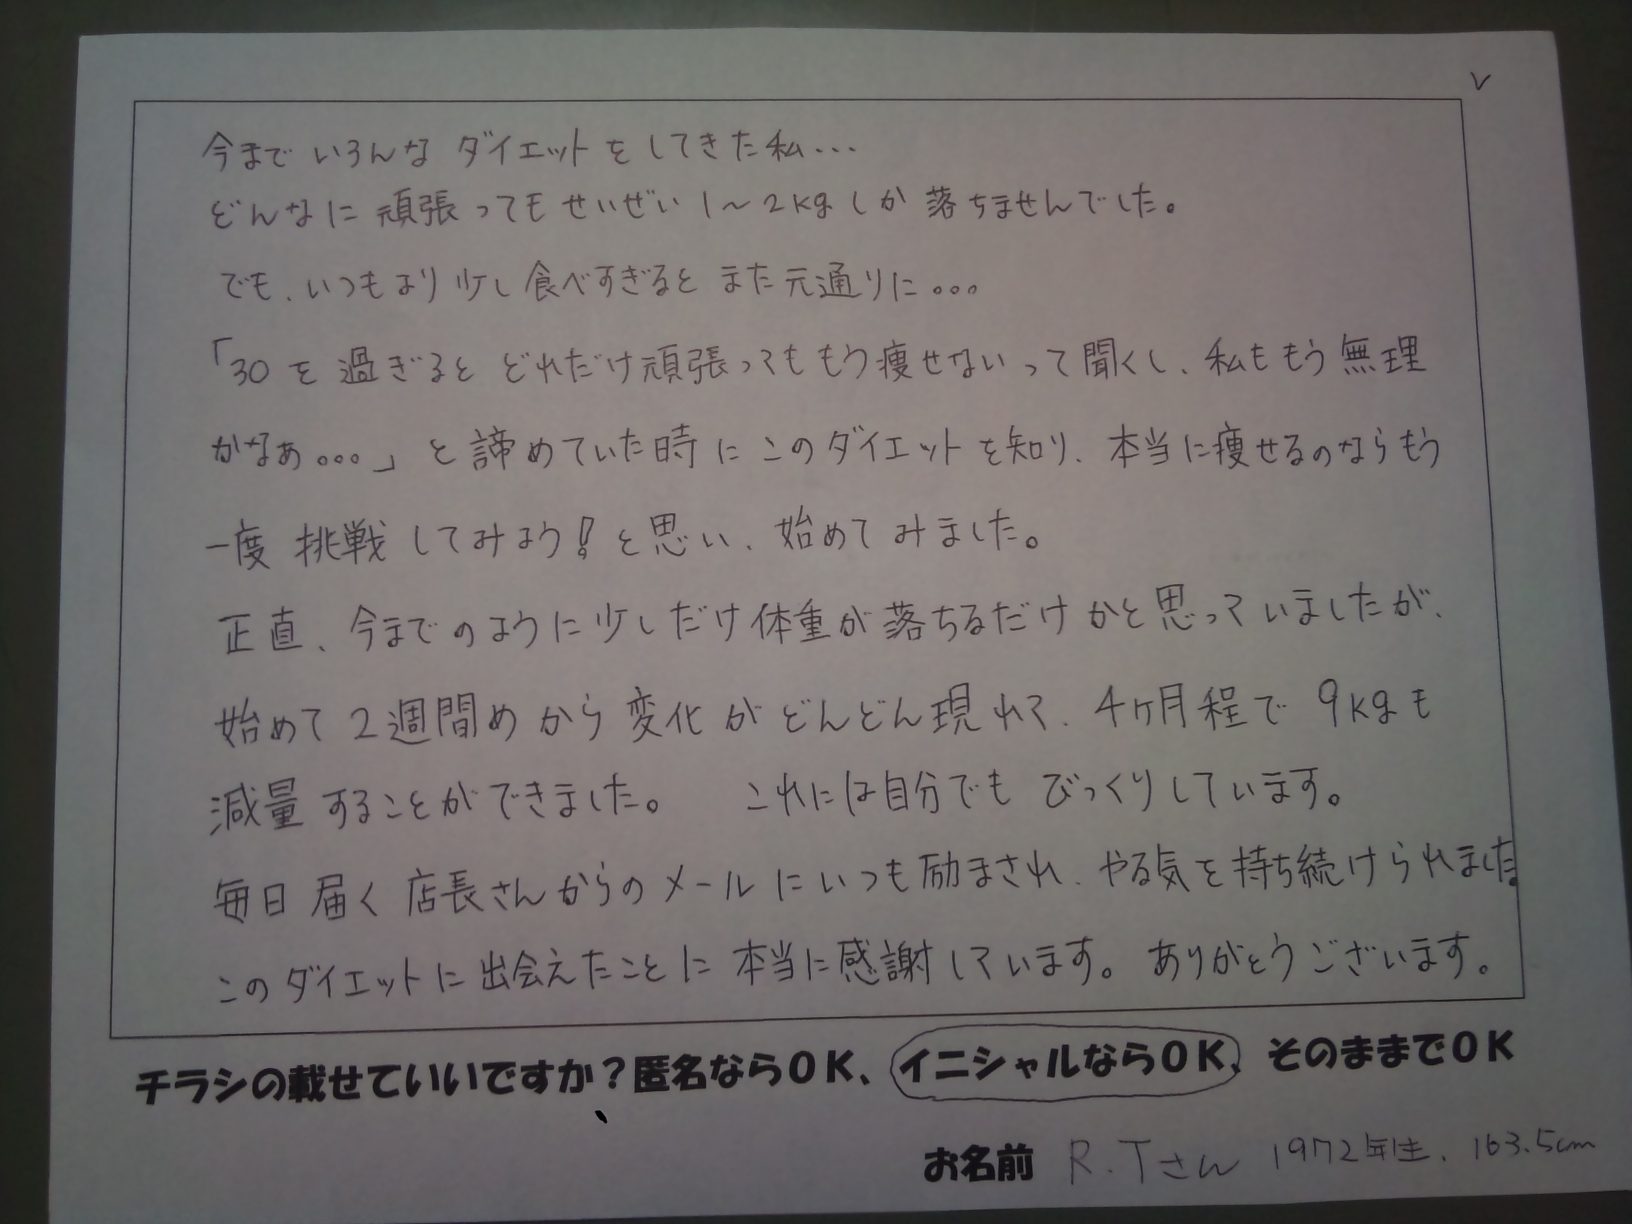 今までいろんなダイエットをしてきた私...
どんなに頑張ってもせいぜい1~2kgしか落ちませんでした。
でも、いつもより少し食べすぎるとまた元通りに。。。
「30を過ぎるとどれだけ頑張ってももう痩せないって聞くし、私ももう無理
かなぁ。。。」と諦めていた時にこのダイエットを知り、本当に痩せるのならもう
一度挑戦してみよう!と思い、始めてみました。
正直、今までのように少しだけ体重が落ちるだけかと思っていましたが、
始めて2週間めから変化がどんどん現れて、4ヶ月程で9kgも
減量することができました。 これには自分でもびっくりしています。
毎日届く店長さんからのメールにいつも励まされ、やる気を持ち続けられました。
このダイエットに出会えたことに本当に感謝しています。ありがとうございます。
チラシの載せていいですか?匿名ならOK、イニシャルならOK、そのままでOK
お名前 R.Tさん 1972年生、163.5cm